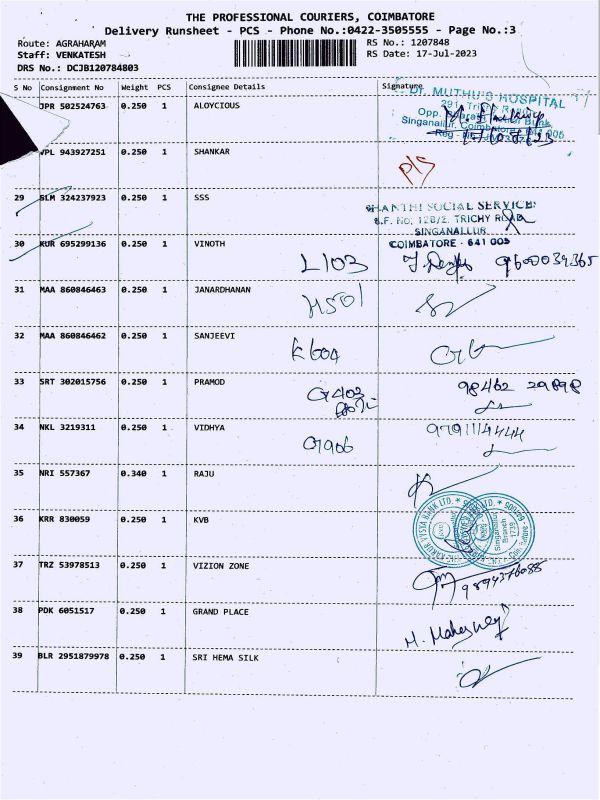 THE PROFESSIONAL COURIERS, COIMBATORE
Delivery Runsheet - PCS - Phone No.:0422-3505555 - Page No.:3
Route: AGRAHARAM RS No.: 1207848
Staff: VENKATESH RS Date: 17-Jul-2023
DRS No: DCJB120784803
S No Consignment No Weight PCS Consignee Details Signature
JPR 502524763 0.250 1 ALOYCIOUS
Dr. MUTHU'S HOSPITAL
VPL 943927251 0.250 1 SHANKAR
29 SLM 324237923 0.250 1 SSS
SHANTHI SOCIAL SERVICE
S.F. No. 128/2, TRICHY ROAD
SINGANALLUR
COIMBATORE - 641 005
30 KUR 695299136 0.250 1 VINOTH
L103 9600039365
31 MAA 860846463 0.250 1 JANARDHANAN
H501
32 MAA 860846462 0.250 1 SANJEEVI
K604
33 SRT 302015756 0.250 1 PRAMOD
G403 98462 29898
34 NKL 3219311 0.250 1 VIDHYA
G906 9791114444
35 NRI 557367 0.340 1 RAJU
36 KRR 830059 0.250 1 KVB
37 TRZ 53978513 0.250 1 VIZION ZONE
38 PDK 6051517 0.250 1 GRAND PLACE
39 BLR 2951879978 0.250 1 SRI HEMA SILK